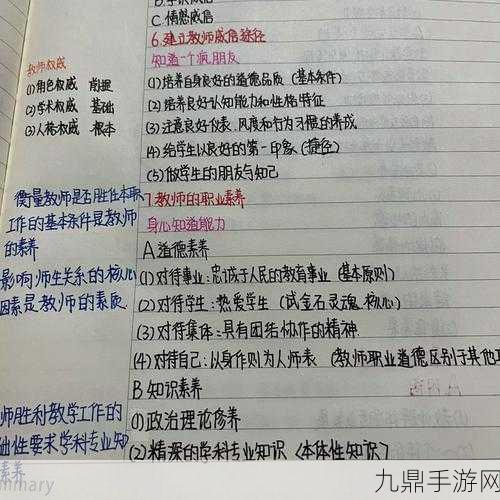 C.情感威信
6.建立教师威信途径
知道一个疯朋友
(1)培养自身良好的道德品质(基本条件)
(2)培养良好认知能力和性格特征
(3)注意良好仪表、风度和行为习惯的养成
(4)给学生以良好的第一印象(捷径)
(5)做学生的朋友与知己
7.教师的职业素养
身心知道能力
A.道德素养
(1)对待事业:忠诚于人民的教育事业(基本原则)
(2)对待学生:热爱学生(试金石灵魂.核心)
(3)对待集体:具有团结协作的精神
(4)对待自己:以身作则为人师表(教师职业道德区别于其他
B.知识素养
(1)政治理论修养
(2)精深的学科专业知识<本体性知识>
教师权威
(1)角色权威 前提
(2)学术权威 基础
(3)人格权威 根本
衡量教师是否胜任本职
工作的基本条件是教师
的素养
影响师生关系的核心
因素是教师的素质.
师胜利教学工作的
础性要求学科专业知
素养
mmary
九鼎手游网